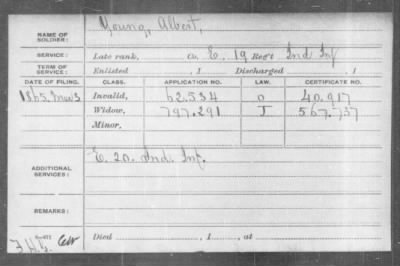 NAME OF SOLDIER: Young, Albert,
SERVICE: Late rank, Co. E, 19 Reg't Ind Inf
TERM OF SERVICE: Enlisted , 1 Discharged , 1
DATE OF FILING. CLASS. APPLICATION NO. LAW. CERTIFICATE NO.
1865, Invalid, 62.534 O 40.917
Widow, 797.291 J 567.737
Minor,
ADDITIONAL SERVICES: E. 20. Ind. Inf.
REMARKS:
Died , 1 , at